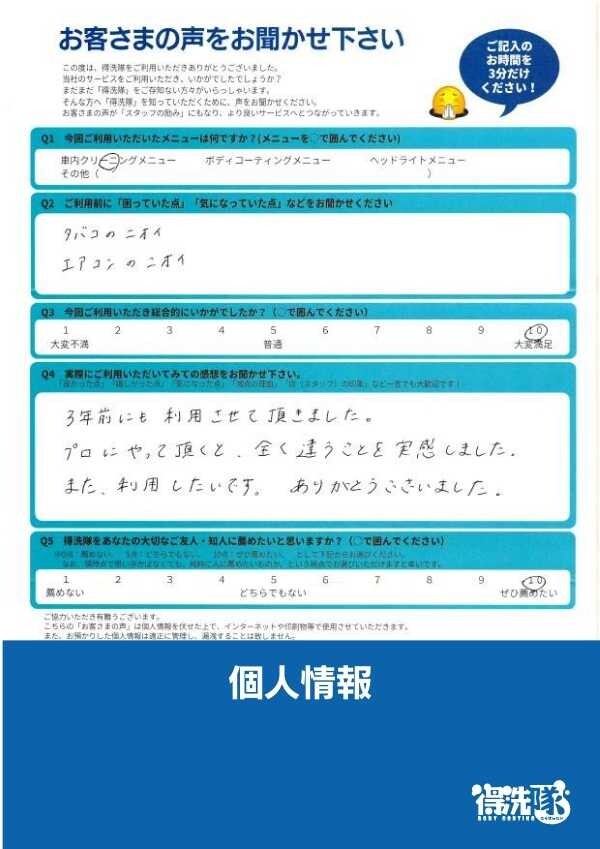 お客さまの声をお聞かせ下さい
ご記入の
お時間を
3分だけ
ください！
この度は、得洗隊をご利用いただきありがとうございました。
当社のサービスをご利用いただき、いかがでしたでしょうか？
まだまだ「得洗隊」をご存知ない方々がいらっしゃいます。
そんな方へ「得洗隊」を知っていただくために、声をお聞かせください。
お客さまの声が「スタッフの励み」にもなり、より良いサービスへとつながっていきます。
Q1 今回ご利用いただいたメニューは何ですか？(メニューを○で囲んでください)
車内クリーニングメニュー ボディコーティングメニュー ヘッドライトメニュー
その他（ ）
Q2 ご利用前に「困っていた点」「気になっていた点」などをお聞かせください
タバコのニオイ
エアコンのニオイ
Q3 今回ご利用いただき総合的にいかがでしたか？（○で囲んでください）
1 2 3 4 5 6 7 8 9 10
大変不満 普通 大変満足
Q4 実際にご利用いただいてみての感想をお聞かせ下さい。
「良かった点」「嬉しかった点」「気になった点」「満点の理由」「店（スタッフ）の印象」など一言でも大歓迎です！
3年前にも利用させて頂きました。
プロにやって頂くと、全く違うことを実感しました。
また、利用したいです。 ありがとうございました。
Q5 得洗隊をあなたの大切なご友人・知人に薦めたいと思いますか？（○で囲んでください）
※0点：薦めない、 5点：どちらでもない、 10点：ぜひ薦めたい、 として下記からお選びください。
1 2 3 4 5 6 7 8 9 10
薦めない どちらでもない ぜひ薦めたい
ご協力いただき有難うございます。
こちらの「お客さまの声」は個人情報を伏せた上で、インターネットや印刷物等で使用させていただきます。
また、お預かりした個人情報は適正に管理し、漏洩することは致しません。
個人情報
得洗隊
BODY COATING